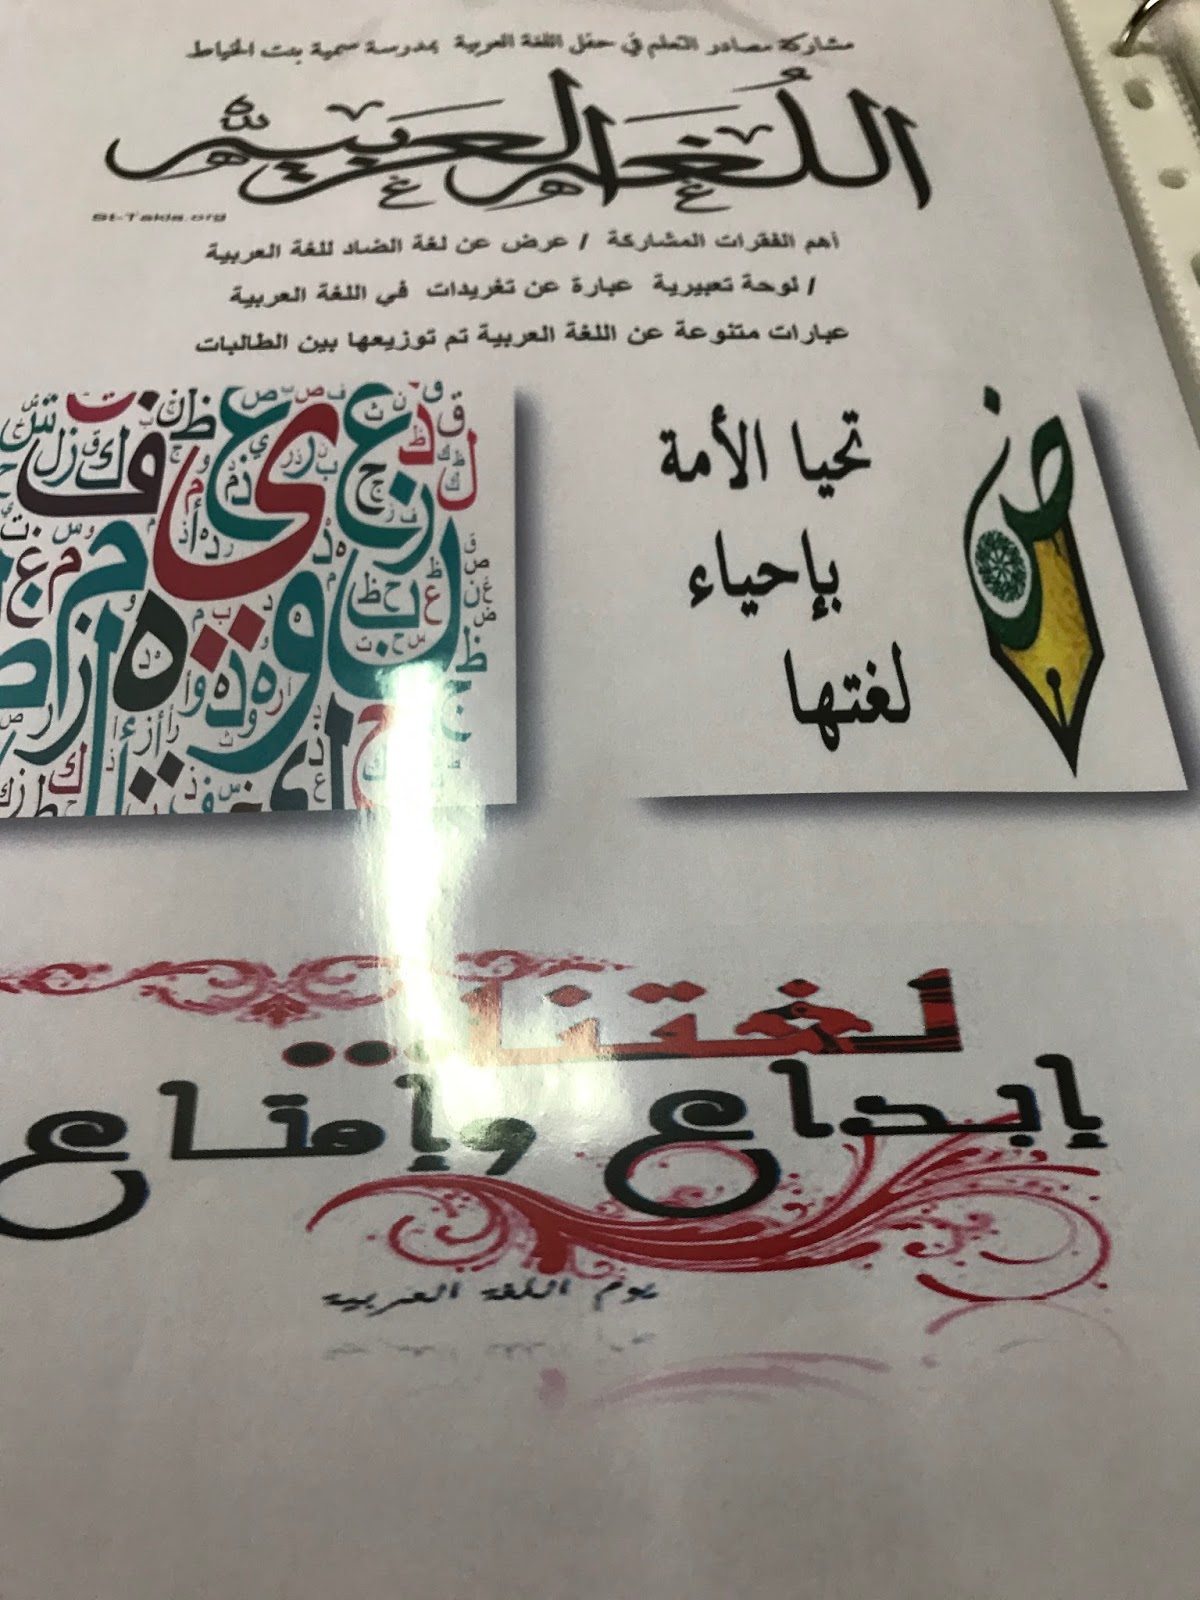 مشاركة مصادر التعلم في حفل اللغة العربية بمدرسة سمية بنت الخياط
اللُغة العربية
St-Takla.org
أهم الفقرات المشاركة / عرض عن لغة الضاد للغة العربية
/ لوحة تعبيرية عبارة عن تغريدات في اللغة العربية
عبارات متنوعة عن اللغة العربية تم توزيعها بين الطالبات
ض
تحيا الأمة
بإحياء
لغتها
لغتنا..
إبداع وإمتاع
يوم اللغة العربية